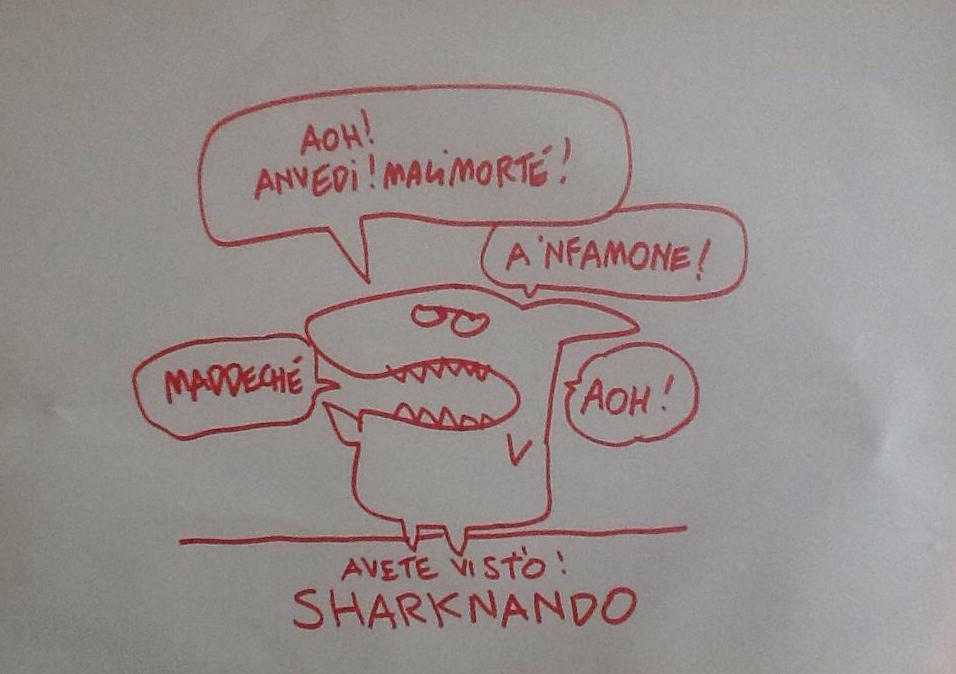 AOH!
ANVEDI! MALIMORTÉ!
A 'NFAMONE!
MADDECHÉ
AOH!
AVETE VISTO:
SHARKNANDO